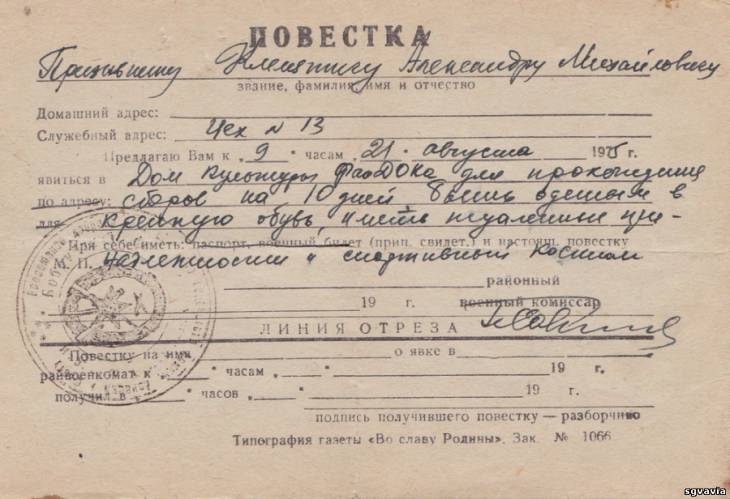 ПОВЕСТКА
Призывнику Александру Михайловичу
звание, фамилия, имя и отчество
Домашний адрес:
Служебный адрес: Цех № 13
Предлагаю Вам к „9" часам „21" августа 1975 г.
явиться в Дом культуры для прохождения
по адресу: сборов на 10 дней быть одетым в
для крепкую обувь, иметь туалетные при-
При себе иметь: паспорт, военный билет (прип. свидет.) и настоящ. повестку
М. П. надлежности и спортивный костюм
районный
19 г. военный комиссар
ЛИНИЯ ОТРЕЗА
Повестку на имя о явке в
райвоенкомат к „ " часам „ " 19 г.
получил в „ " часов „ " 19 г.
подпись получившего повестку — разборчиво
Типография газеты «Во славу Родины». Зак. № 1066
sgvavia